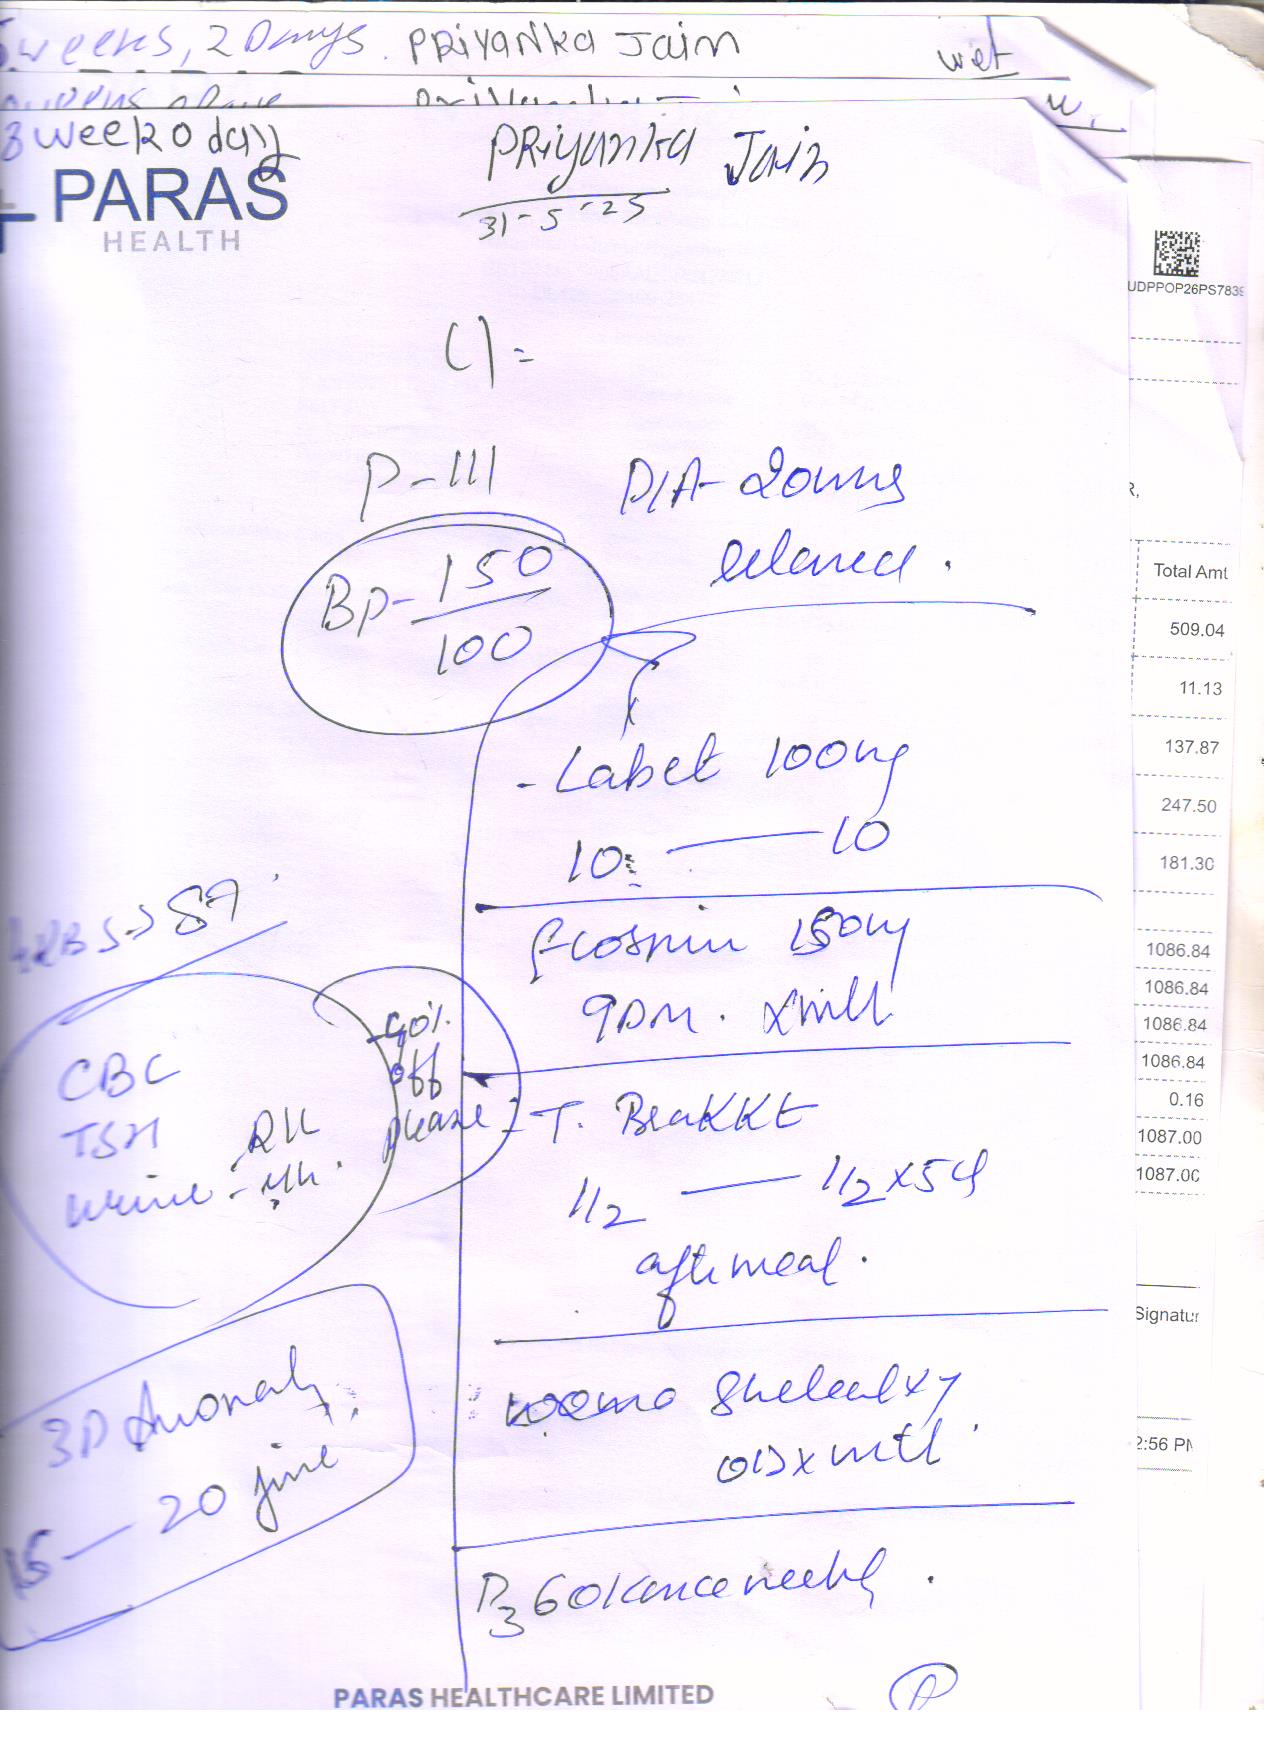 weeks, 2 Days. PRiyanka Jain
wet
8 week 0 day
PRiyanka Jain
31-5-25
PARAS
HEALTH
UDPPOP26PS7839
C) =
P-111
P/A- 20wks
relaxed.
BP- 150
100
R,
Total Amt
509.04
11.13
137.87
247.50
181.30
1086.84
1086.84
1086.84
1086.84
0.16
1087.00
1087.00
Signatur
2:56 PM
- Labet 100mg
10 — 10
RBS -> 87
Ecosprin 150mg
9PM. x mth
CBC
TSH
Urine - R/M
40%
off
please
- T.
1/2 — 1/2 x 5d
after meal.
3D Anomaly
15 — 20 June
Shelcal xy
OD x mth
D3 60K once weekly.
PARAS HEALTHCARE LIMITED